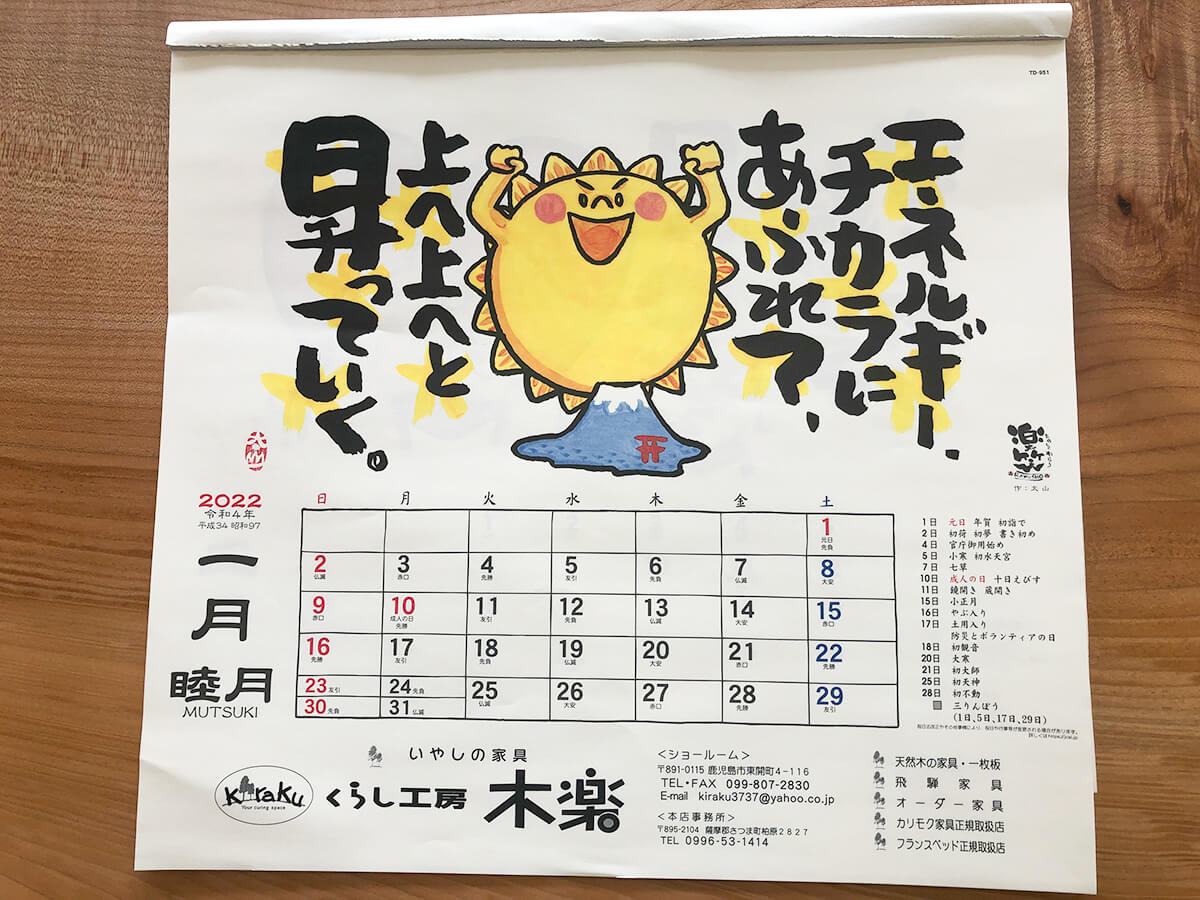 TD-951
エネルギー、
チカラに
あふれて、
上へ上へと
昇っていく。
作:太山
2022
令和4年
平成34 昭和97
一月
睦月
MUTSUKI
日 月 火 水 木 金 土
1 元日 先負
2 仏滅 3 赤口 4 先勝 5 友引 6 先負 7 仏滅 8 大安
9 赤口 10 成人の日 先勝 11 友引 12 先負 13 仏滅 14 大安 15 赤口
16 先勝 17 友引 18 先負 19 仏滅 20 大安 21 赤口 22 先勝
23 友引 24 先負 25 仏滅 26 大安 27 赤口 28 先勝 29 友引
30 先負 31 仏滅
1日 元日 年賀 初詣で
2日 初荷 初夢 書き初め
4日 官庁御用始め
5日 小寒 初水天宮
7日 七草
10日 成人の日 十日えびす
11日 鏡開き 蔵開き
15日 小正月
16日 やぶ入り
17日 土用入り
防災とボランティアの日
18日 初観音
20日 大寒
21日 初大師
25日 初天神
28日 初不動
三りんぼう
(1日、5日、17日、29日)
いやしの家具
Kiraku
Your curing space
くらし工房 木楽
<ショールーム>
〒891-0115 鹿児島市東開町4-116
TEL・FAX 099-807-2830
E-mail kiraku3737@yahoo.co.jp
<本店事務所>
〒895-2104 薩摩郡さつま町柏原2827
TEL 0996-53-1414
天然木の家具・一枚板
飛騨家具
オーダー家具
カリモク家具正規取扱店
フランスベッド正規取扱店